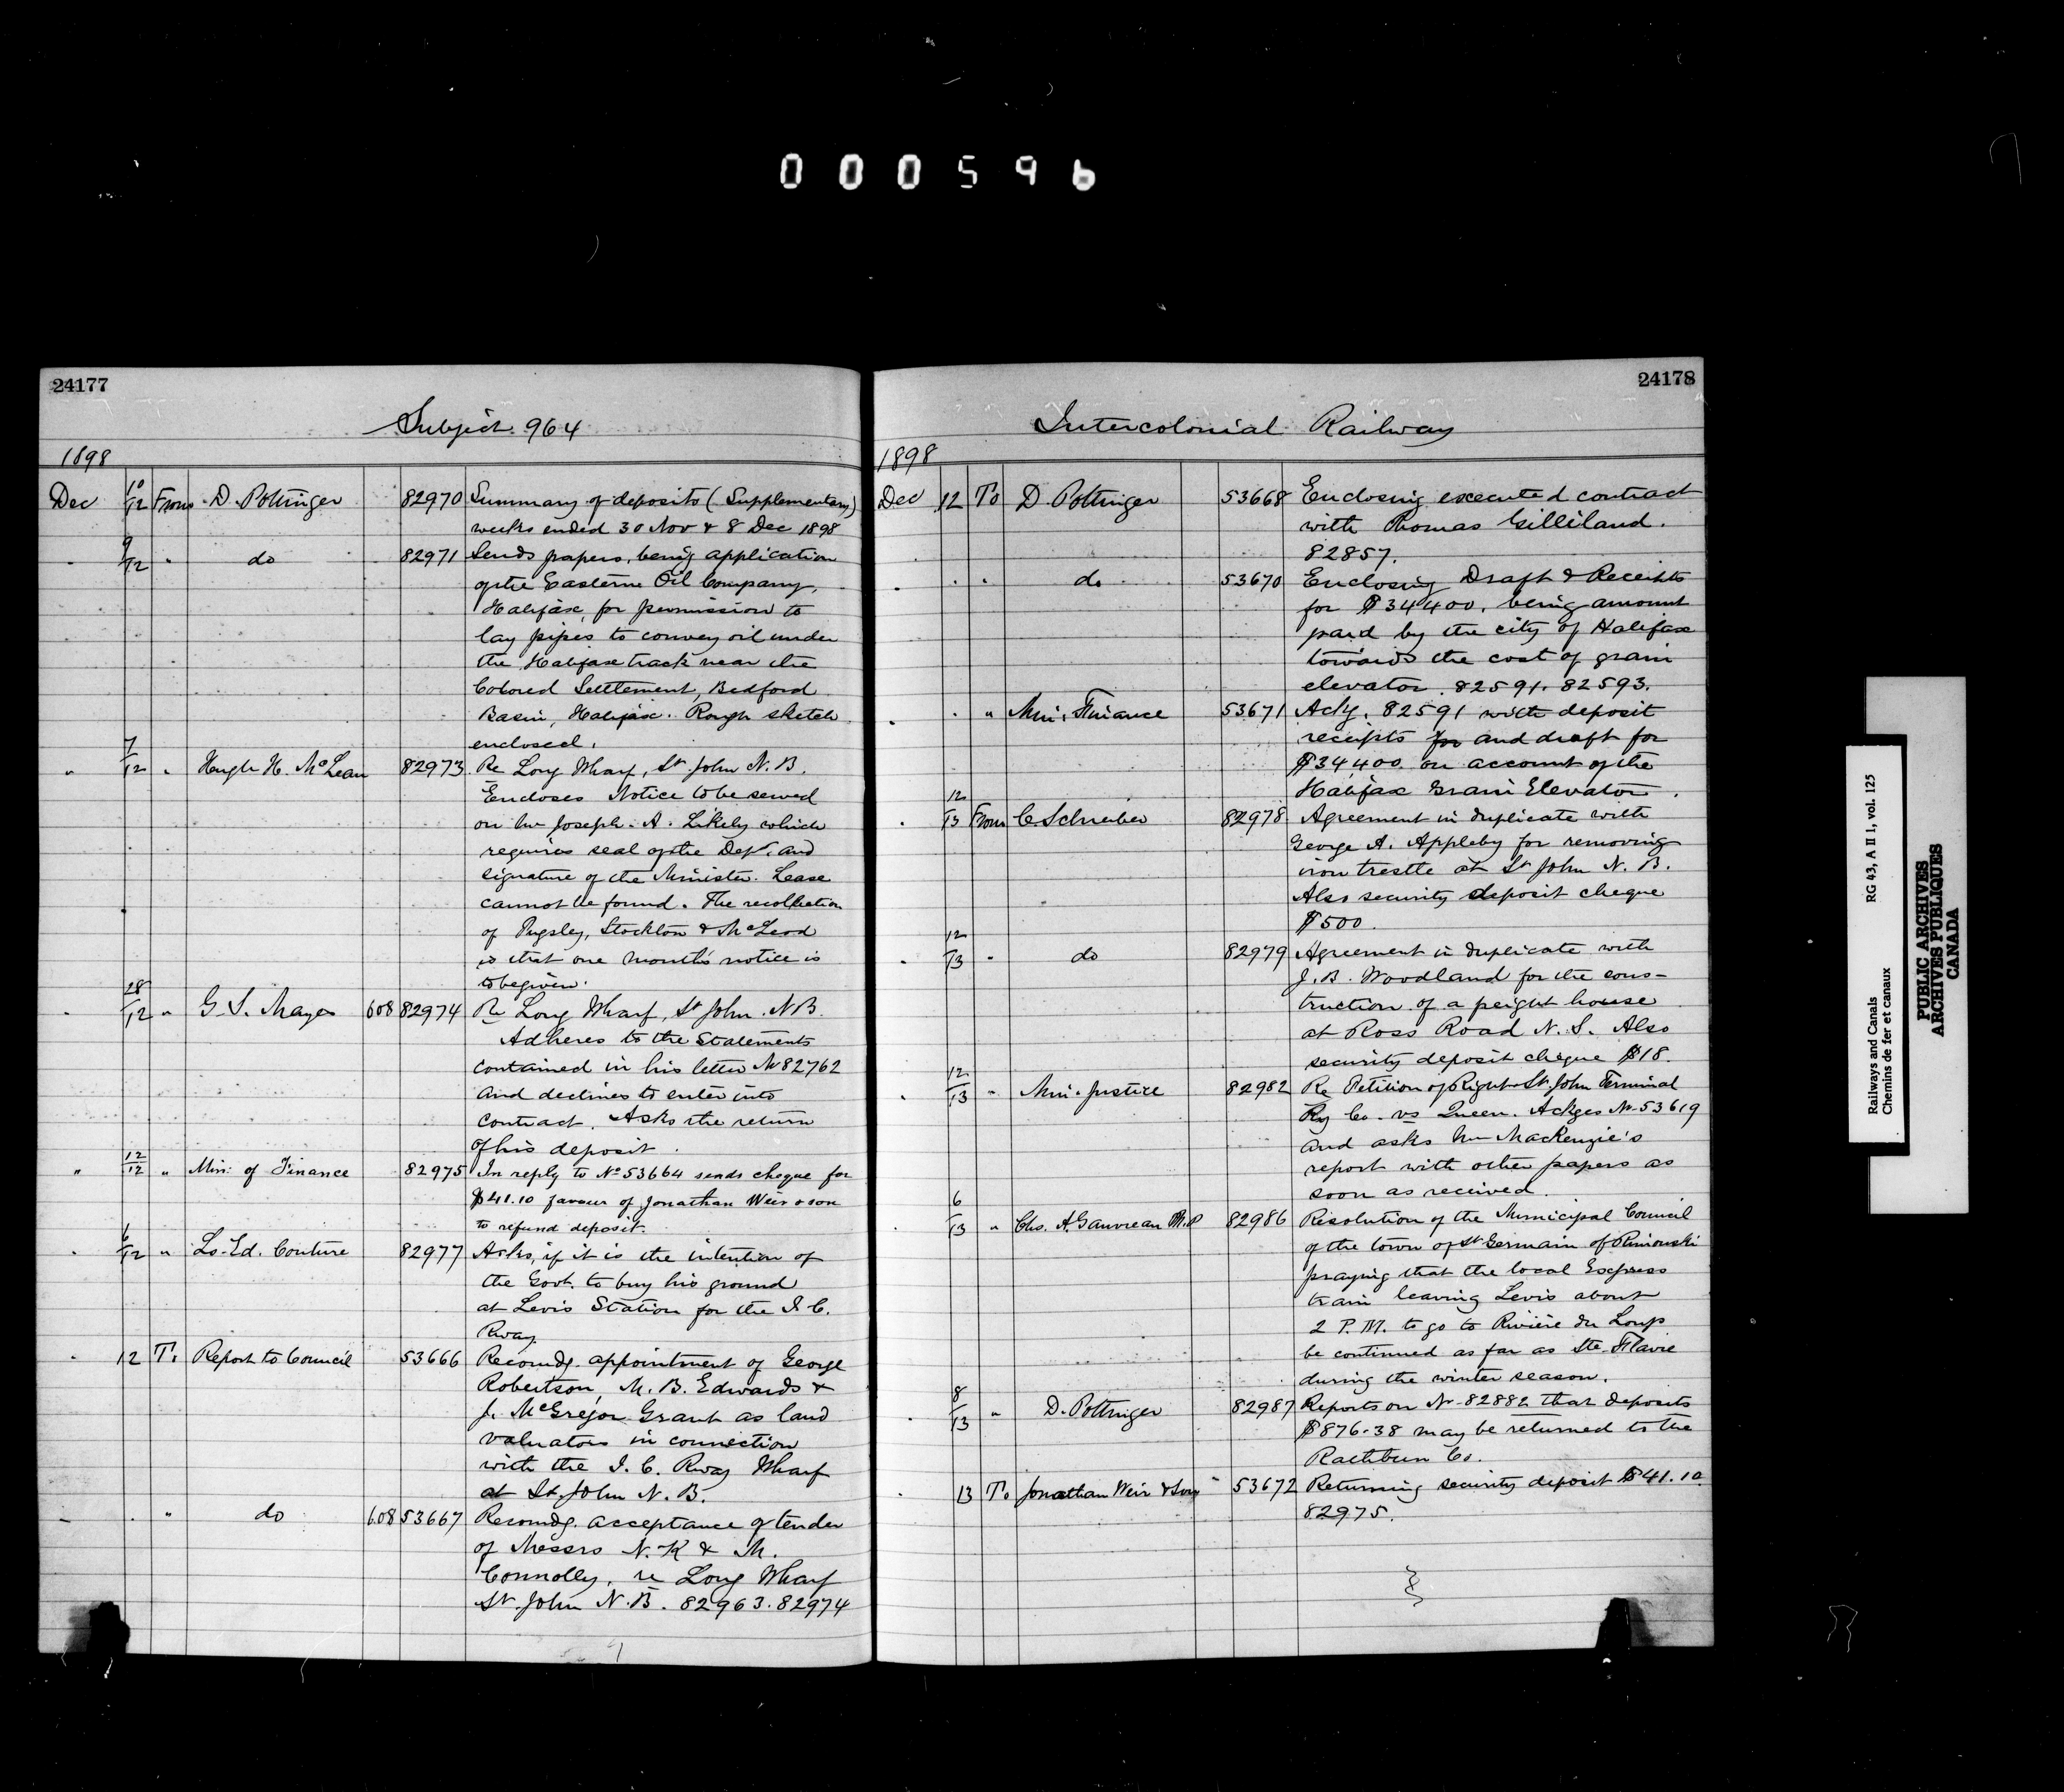 000596
24177
Subject 964
1898
Dec 10/12 From D. Pottinger 82970 Summary of deposits (Supplementary)
weeks ended 30 Nov & 8 Dec 1898
" 9/12 " do 82971 Sends papers, being application
of the Eastern Oil Company,
Halifax, for permission to
lay pipes to convey oil under
the Halifax track near the
Colored Settlement, Bedford
Basin, Halifax. Rough sketch
enclosed.
" 7/12 " Hugh H. McLean 82973 Re Long Wharf, St John N.B.
Encloses Notice to be served
on Mr Joseph. A. Likely which
requires seal of the Dept. and
signature of the Minister. Lease
cannot be found. The recollection
of Pugsley, Stockton & McLeod
is that one month's notice is
to be given.
" 28/12 " G. S. Mayes 608 82974 Re Long Wharf, St John. N.B.
Adheres to the statements
contained in his letter No 82762
and declines to enter into
contract. Asks the return
of his deposit.
" 12/12 " Min: of Finance 82975 In reply to No 53664 sends cheque for
$41.10 favour of Jonathan Weir & son
to refund deposit.
" 6/12 " Ls. Ed. Couture 82977 Asks, if it is the intention of
the Govt. to buy his ground
at Levis Station for the I. C.
Rway.
" 12 To Report to Council 53666 Recomdg. appointment of George
Robertson, M. B. Edwards &
J. McGregor Grant as land
valuators in connection
with the I. C. Rway Wharf
at St. John N. B.
" " " do 608 53667 Recomdg. acceptance of tender
of Messrs N. K & M.
Connolly, re Long Wharf
St. John N. B. 82963. 82974
24178
Intercolonial Railway
1898
Dec 12 To D. Pottinger 53668 Enclosing executed contract
with Thomas Gilliland.
82857.
" " " do 53670 Enclosing Draft & Receipts
for $34400. being amount
paid by the city of Halifax
towards the cost of grain
elevator. 82591. 82593.
" " " Min: Finance 53671 Ackg. 82591 with deposit
receipts for and draft for
$34,400 on account of the
Halifax Grain Elevator.
" 12/13 From C. Schreiber 82978 Agreement in duplicate with
George A. Appleby for removing
iron trestle at St John N. B.
Also security deposit cheque
$500.
" 12/13 " do 82979 Agreement in duplicate with
J. B. Woodland for the cons-
truction of a freight house
at Ross Road N. S. Also
security deposit cheque $18.
" 12/13 " Min: Justice 82982 Re Petition of Right St. John Terminal
Ry Co. vs Queen. Ackges No 53619
and asks Mr MacKenzie's
report with other papers as
soon as received.
" 6/13 " Chs. A. Gauvreau M.P 82986 Resolution of the Municipal Council
of the town of St Germain of Rimouski
praying that the local Express
train leaving Levis about
2 P.M. to go to Rivière du Loup
be continued as far as Ste. Flavie
during the winter season.
" 8/13 " D. Pottinger 82987 Reports on No 82882 that deposits
$876.38 may be returned to the
Rathbun Co.
" 13 To Jonathan Weir & Son 53672 Returning security deposit $41.10
82975.
Railways and Canals RG 43, A II 1, vol. 125
Chemins de fer et canaux
PUBLIC ARCHIVES
ARCHIVES PUBLIQUES
CANADA